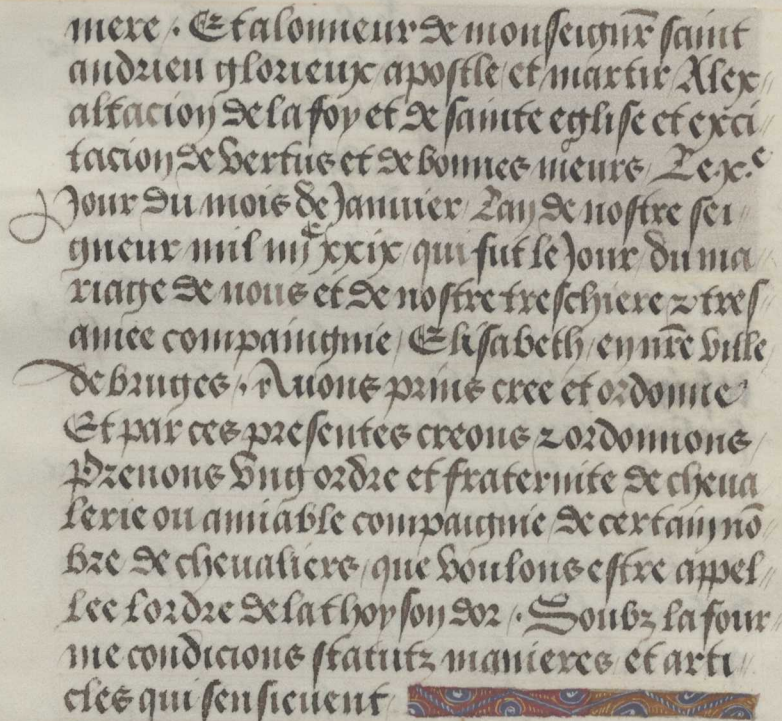 mere . Et a lonneur de monseignr̄ saint
andrieu glorieux apostle et martir / A lex //
altacion de la foy et de sainte eglise et exci //
tacion de vertus et de bonnes meurs / Le .x.e
Jour du mois de Januier / Lan de nostre sei //
gneur mil iiijc xxix / qui fut le Jour / du ma //
riage de nous et de nostre treschiere z tres
amee compaingnie / Elisabeth / en nr̄e ville
de bruges . Auons prins cree et ordonne
Et par ces presentes creons z ordonnons
Prenons vng ordre et fraternite de cheua //
lerie ou amiable compaignie / de certain nō //
bre de cheualiers / que voulons estre appel //
lee lordre de la thoyson dor . Soubz la four //
me condicions statutz manieres et arti //
cles qui sensieuent